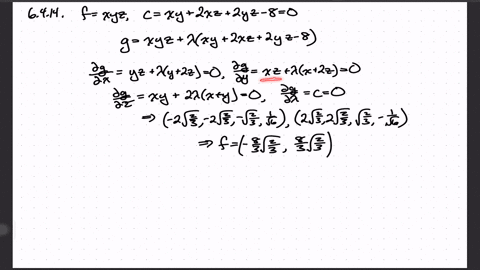 6.4.14. f=xyz, c=xy+2xz+2yz-8=0
g=xyz+λ(xy+2xz+2yz-8)
∂g/∂x=yz+λ(y+2z)=0, ∂g/∂y=xz+λ(x+2z)=0
∂g/∂z=xy+2λ(x+y)=0, ∂g/∂λ=c=0
⇒(-2√(2/3),-2√(2/3),-√(2/3),1/√6),(2√(2/3),2√(2/3),√(2/3),-1/√6)
⇒f=(-8/3√(2/3), 8/3√(2/3))